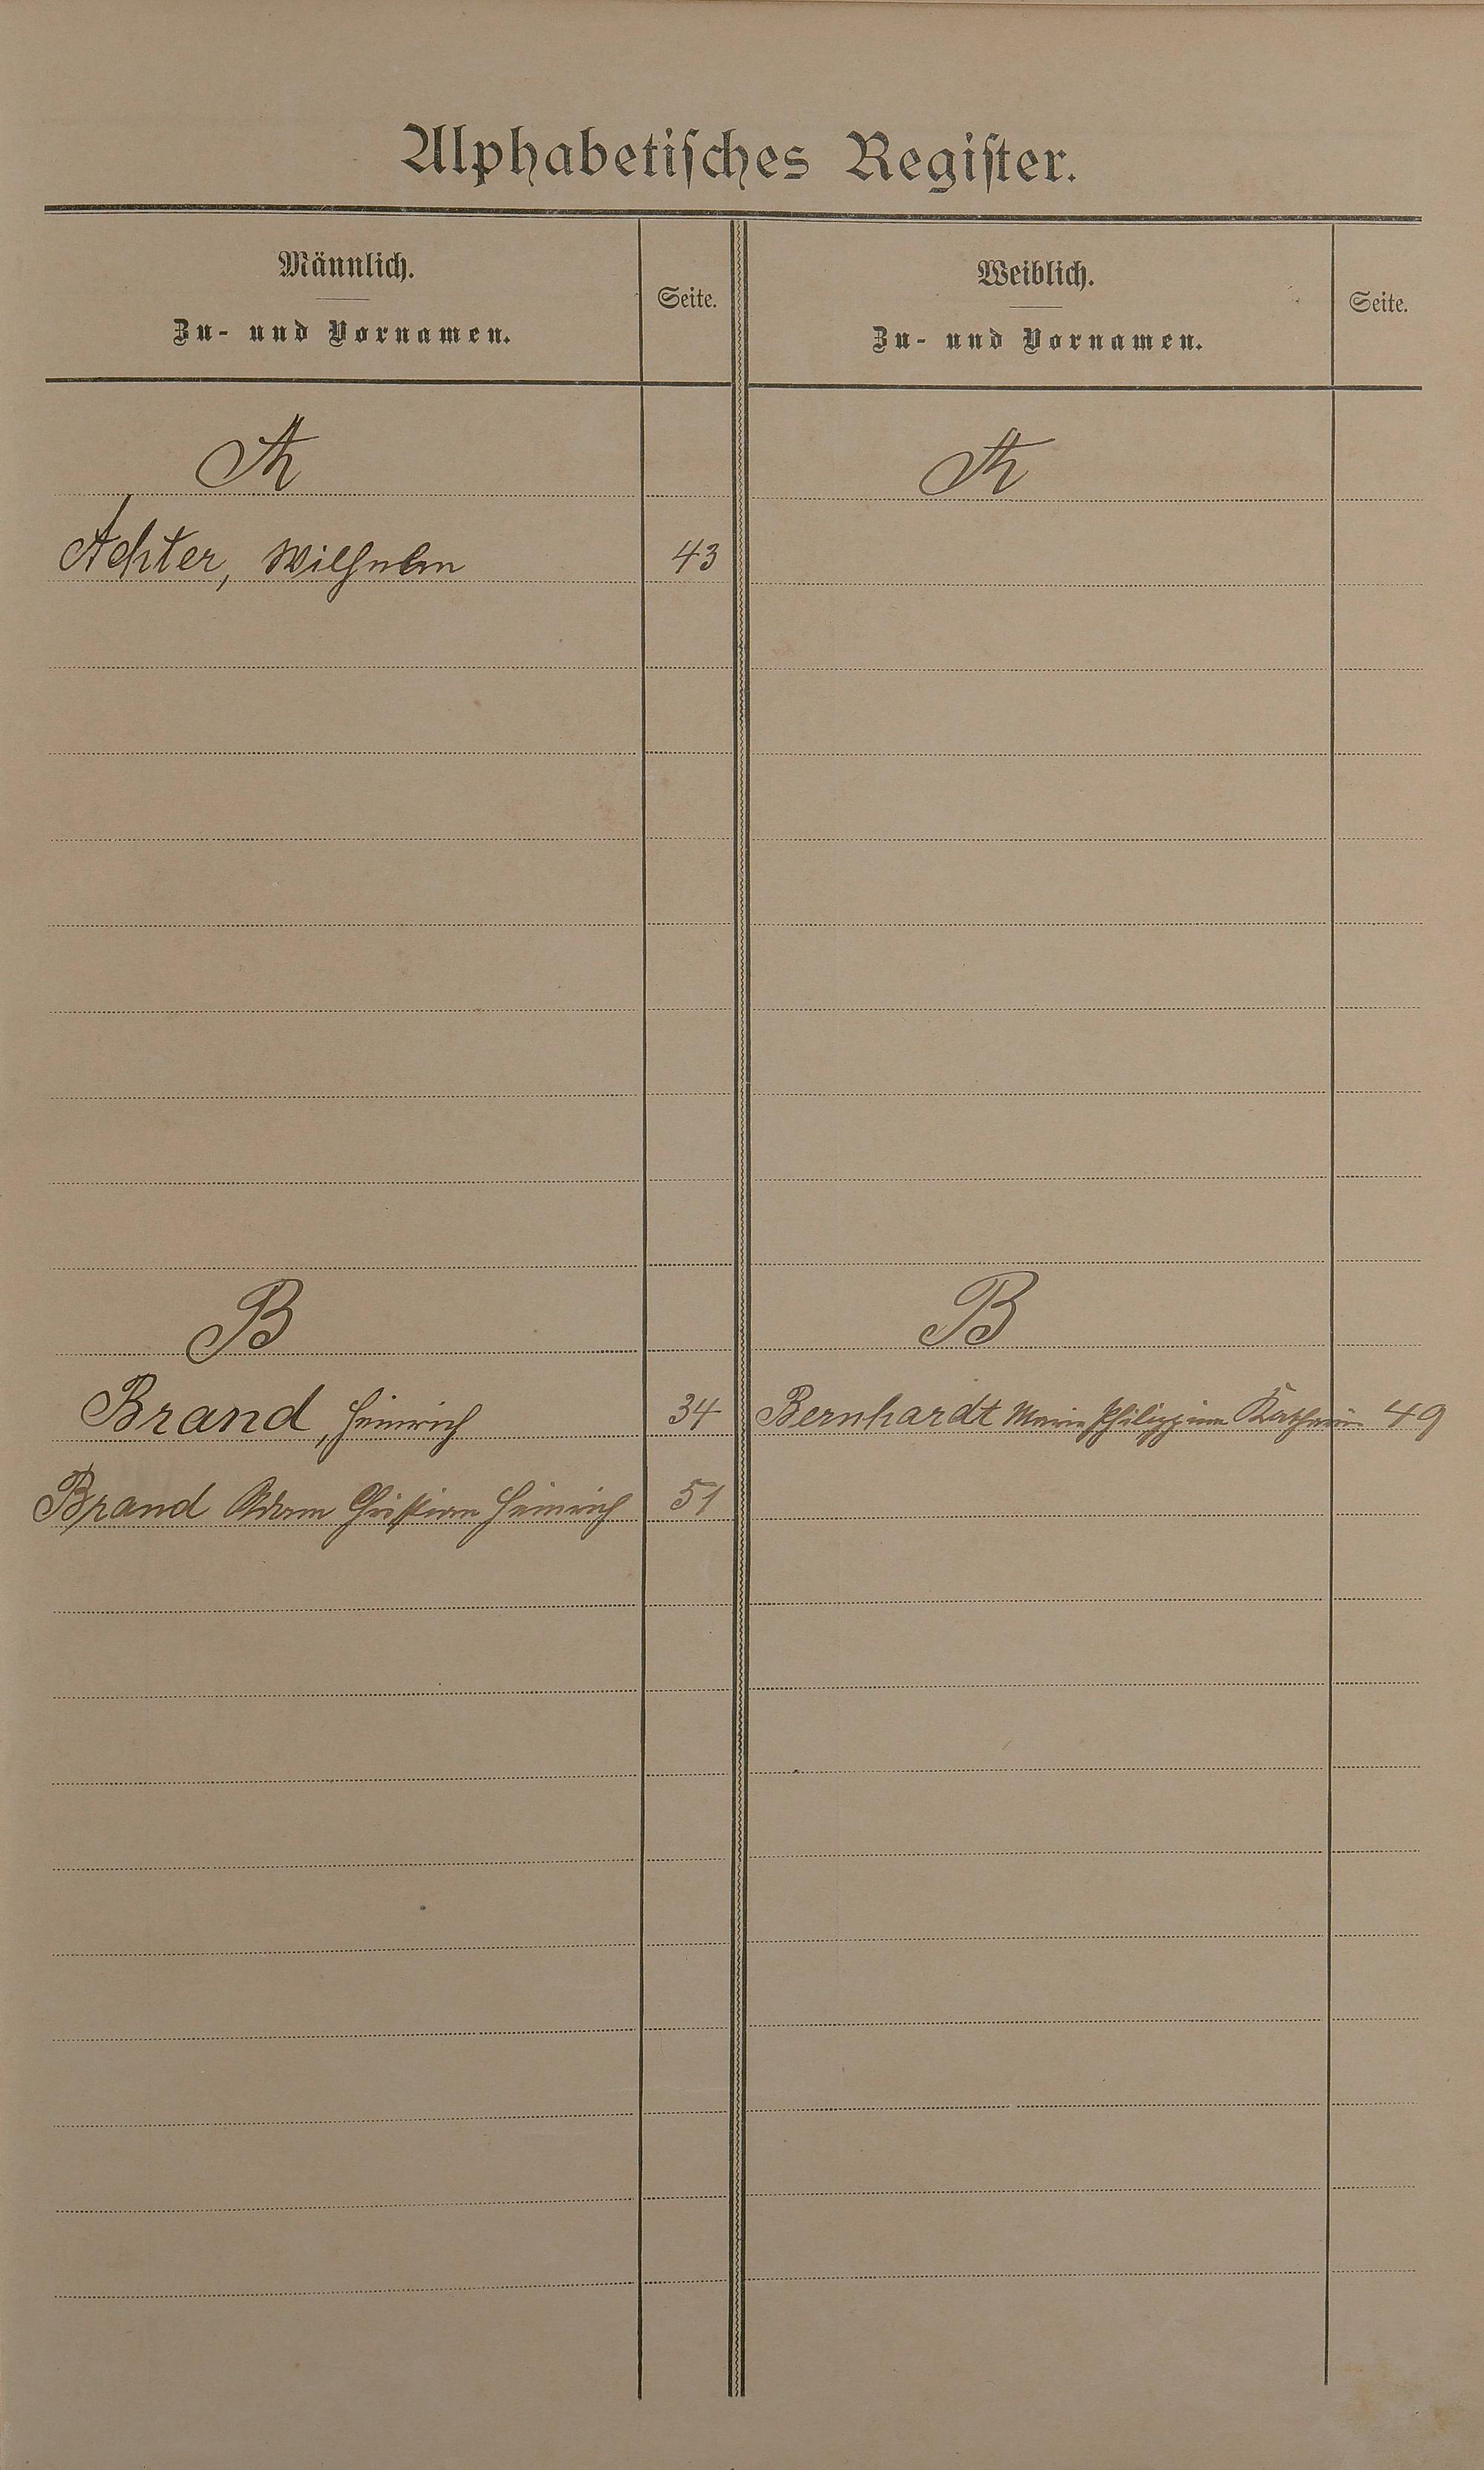 Alphabetisches Register.
Männlich.
Zu- und Vornamen.
Seite.
Weiblich.
Zu- und Vornamen.
Seite.
A
A
Achter, Wilhelm 43
B
B
Brand, Heinrich 34 Bernhardt Marie Philippine Katharine 49
Brand Adam Christian Heinrich 51